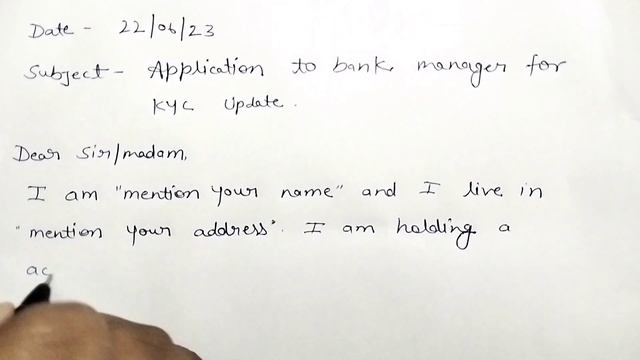 Date - 22/06/23
Subject - Application to bank manager for
KYC Update.
Dear Sir/madam,
I am "mention your name" and I live in
"mention your address". I am holding a
ac